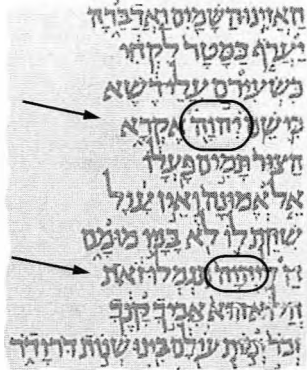 הַאֲזִינוּ הַשָּׁמַיִם וַאֲדַבֵּרָה
יַעֲרֹף כַּמָּטָר לִקְחִי
כִּשְׂעִירִם עֲלֵי דֶשֶׁא
כִּי שֵׁם יְהוָה אֶקְרָא
הַצּוּר תָּמִים פָּעֳלוֹ
אֵל אֱמוּנָה וְאֵין עָוֶל
שִׁחֵת לוֹ לֹא בָּנָיו מוּמָם
הַ לְיהוָה תִּגְמְלוּ זֹאת
הֲלוֹא הוּא אָבִיךָ קָּנֶךָ
זְכֹר יְמוֹת עוֹלָם בִּינוּ שְׁנוֹת דֹּר וָדֹר